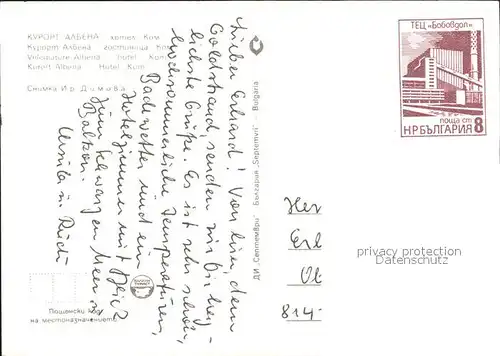 КУРОРТ АЛБЕНА хотел Ком
Курорт Албена гостиница Ком
Volksstatt Albena Hotel Kom
Kurort Albena Hotel Kom
Снимка Ир. Димова
Lieber Erhard! Von hier, dem
Goldstrand, senden wir Dir herz-
lichste Grüße. Es ist sehr schön,
hochsommerliche Temperaturen,
Badewetter und ein
Hotelzimmer mit Blick
zum Schwarzen Meer u.
Balkon.
Ursula u. Rudi
ДИ „Септември" България „Septemvri" Bulgaria
ТЕЦ „Бобовдол"
поща ст
НР БЪЛГАРИЯ 8
Her
Erl
814-
privacy protection
VERITAS Collectors World
Пощенски код
на местоназначението